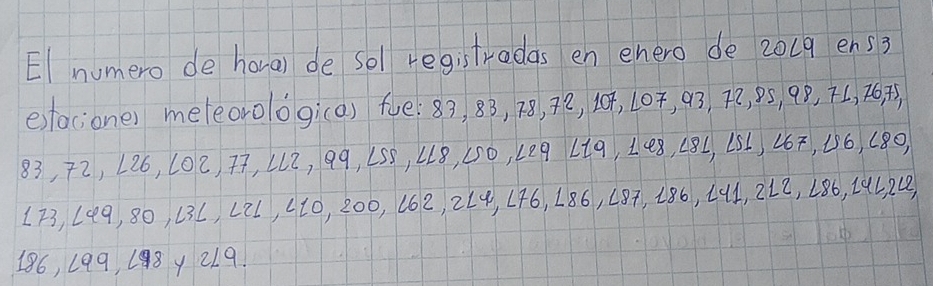 El numero de horas de sol registradas en enero de 2019 en 53
estaciones meteorológicas fue: 83, 83, 78, 72, 107, 107, 93, 72, 85, 98, 71, 76, 75,
83, 72, 126, 102, 77, 112, 99, 158, 118, 150, 129 119, 148, 181, 151, 167, 156, 180,
173, 149, 80, 131, 121, 110, 200, 162, 214, 176, 186, 187, 186, 141, 212, 186, 141, 212,
186, 199, 198 y 219.